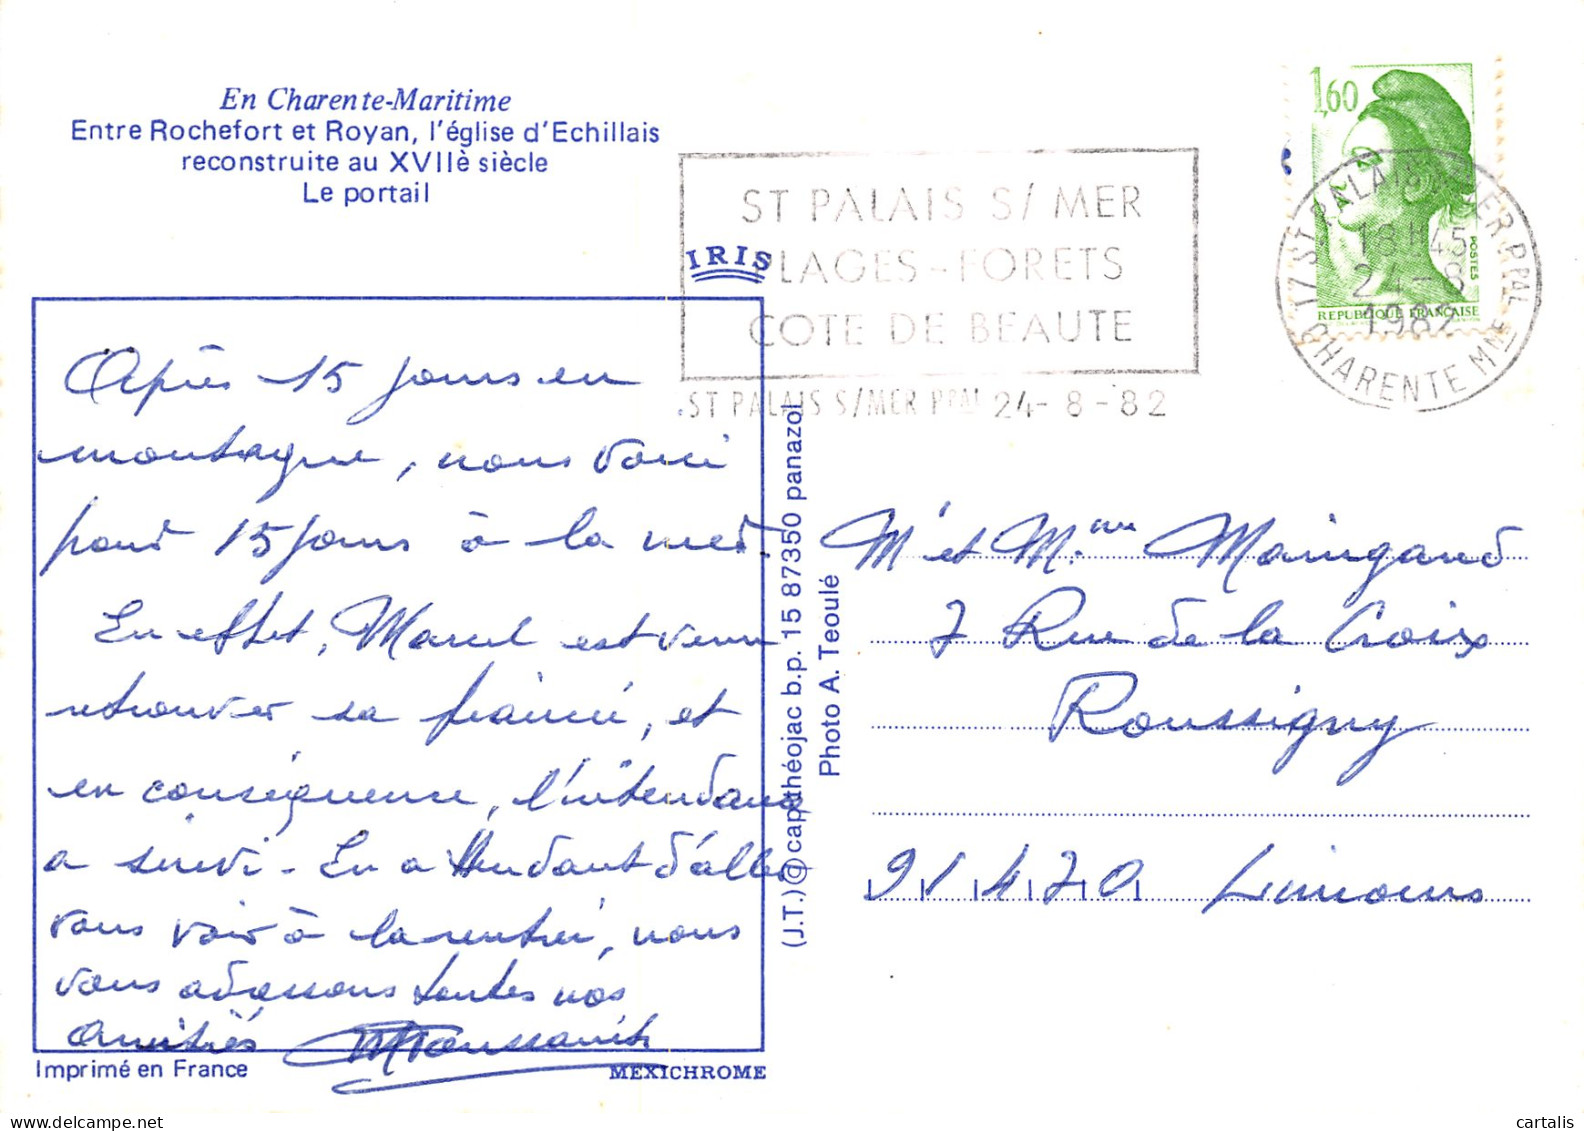 En Charente-Maritime
Entre Rochefort et Royan, l'église d'Echillais
reconstruite au XVIIè siècle
Le portail
IRIS
1,60
POSTES
REPUBLIQUE FRANÇAISE
ST PALAIS S/ MER
PLAGES - FORETS
COTE DE BEAUTE
ST PALAIS S/MER PPAL 24-8-82
17 ST PALAIS S MER PPAL
18H45
24-8
1982
CHARENTE MME
Après 15 jours en
montagne, nous voici
pour 15 jours à la mer.
En effet, Marcel est venu
retrouver sa fiancée, et
en conséquence, l'intendance
a suivi - En attendant d'aller
vous voir à la rentrée, nous
vous adressons toutes nos
amitiés
(J.T.) @ cap-théojac b.p. 15 87350 panazol
Photo A. Teoulé
Mr et Mme Maingaud
7 Rue de la Croix
Roussigny
91470 Limours
Imprimé en France
MEXICHROME
cartalis